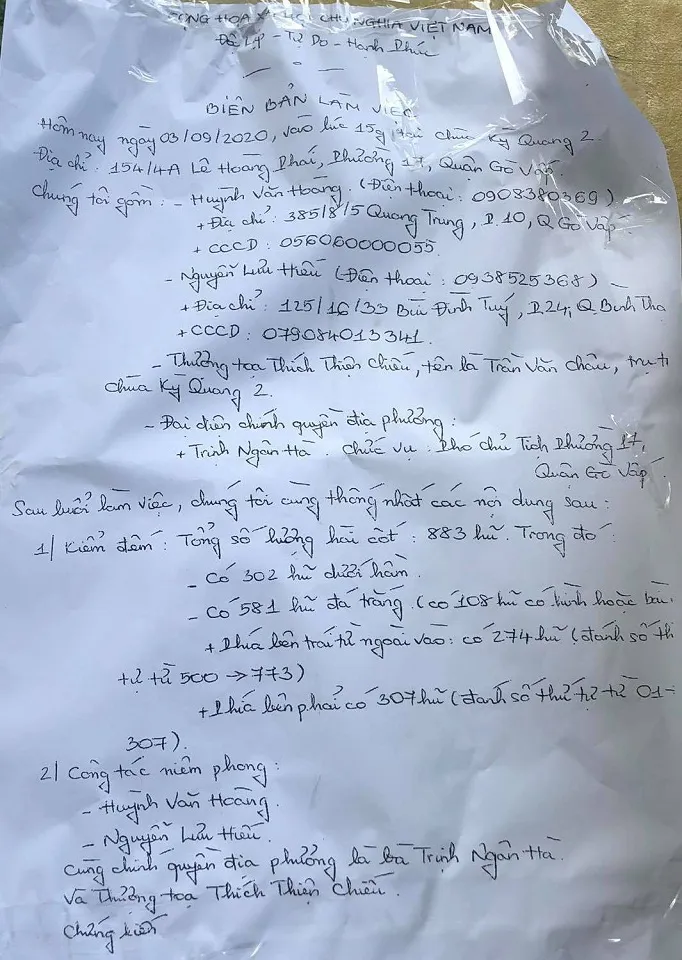 CỘNG HÒA XÃ HỘI CHỦ NGHĨA VIỆT NAM
Độc Lập - Tự Do - Hạnh Phúc
BIÊN BẢN LÀM VIỆC
Hôm nay ngày 03/09/2020, vào lúc 15g tại chùa Kỳ Quang 2.
Địa chỉ: 154/4A Lê Hoàng Phái, Phường 17, Quận Gò Vấp.
Chúng tôi gồm: - Huỳnh Văn Hoàng. (Điện thoại: 0908380369)
+ Địa chỉ: 385/8/5 Quang Trung, P.10, Q Gò Vấp
+ CCCD: 056060000055.
- Nguyễn Lưu Hiếu (Điện thoại: 0938525368)
+ Địa chỉ: 125/16/33 Bùi Đình Tuý, P.24, Q. Bình Thạ
+ CCCD: 079084013341.
- Thượng tọa Thích Thiện Chiếu, tên là Trần Văn Châu, trụ t
chùa Kỳ Quang 2.
- Đại diện chính quyền địa phương:
+ Trịnh Ngân Hà. Chức vụ: Phó chủ Tịch Phường 17,
Quận Gò Vấp.
Sau buổi làm việc, chúng tôi cùng thống nhất các nội dung sau:
1/ Kiểm đếm: Tổng số lượng hài cốt: 883 hũ. Trong đó:
- Có 302 hũ dưới hầm.
- Có 581 hũ đá trắng. (có 108 hũ có hình hoặc bài
+ Phía bên trái từ ngoài vào: có 274 hũ (đánh số th
tự từ 500 → 773)
+ Phía bên phải có 307 hũ (đánh số thứ tự từ 01 -
307).
2/ Công tác niêm phong:
- Huỳnh Văn Hoàng.
- Nguyễn Lưu Hiếu.
cùng chính quyền địa phương là bà Trịnh Ngân Hà.
và Thượng tọa Thích Thiện Chiếu.
Chứng kiến